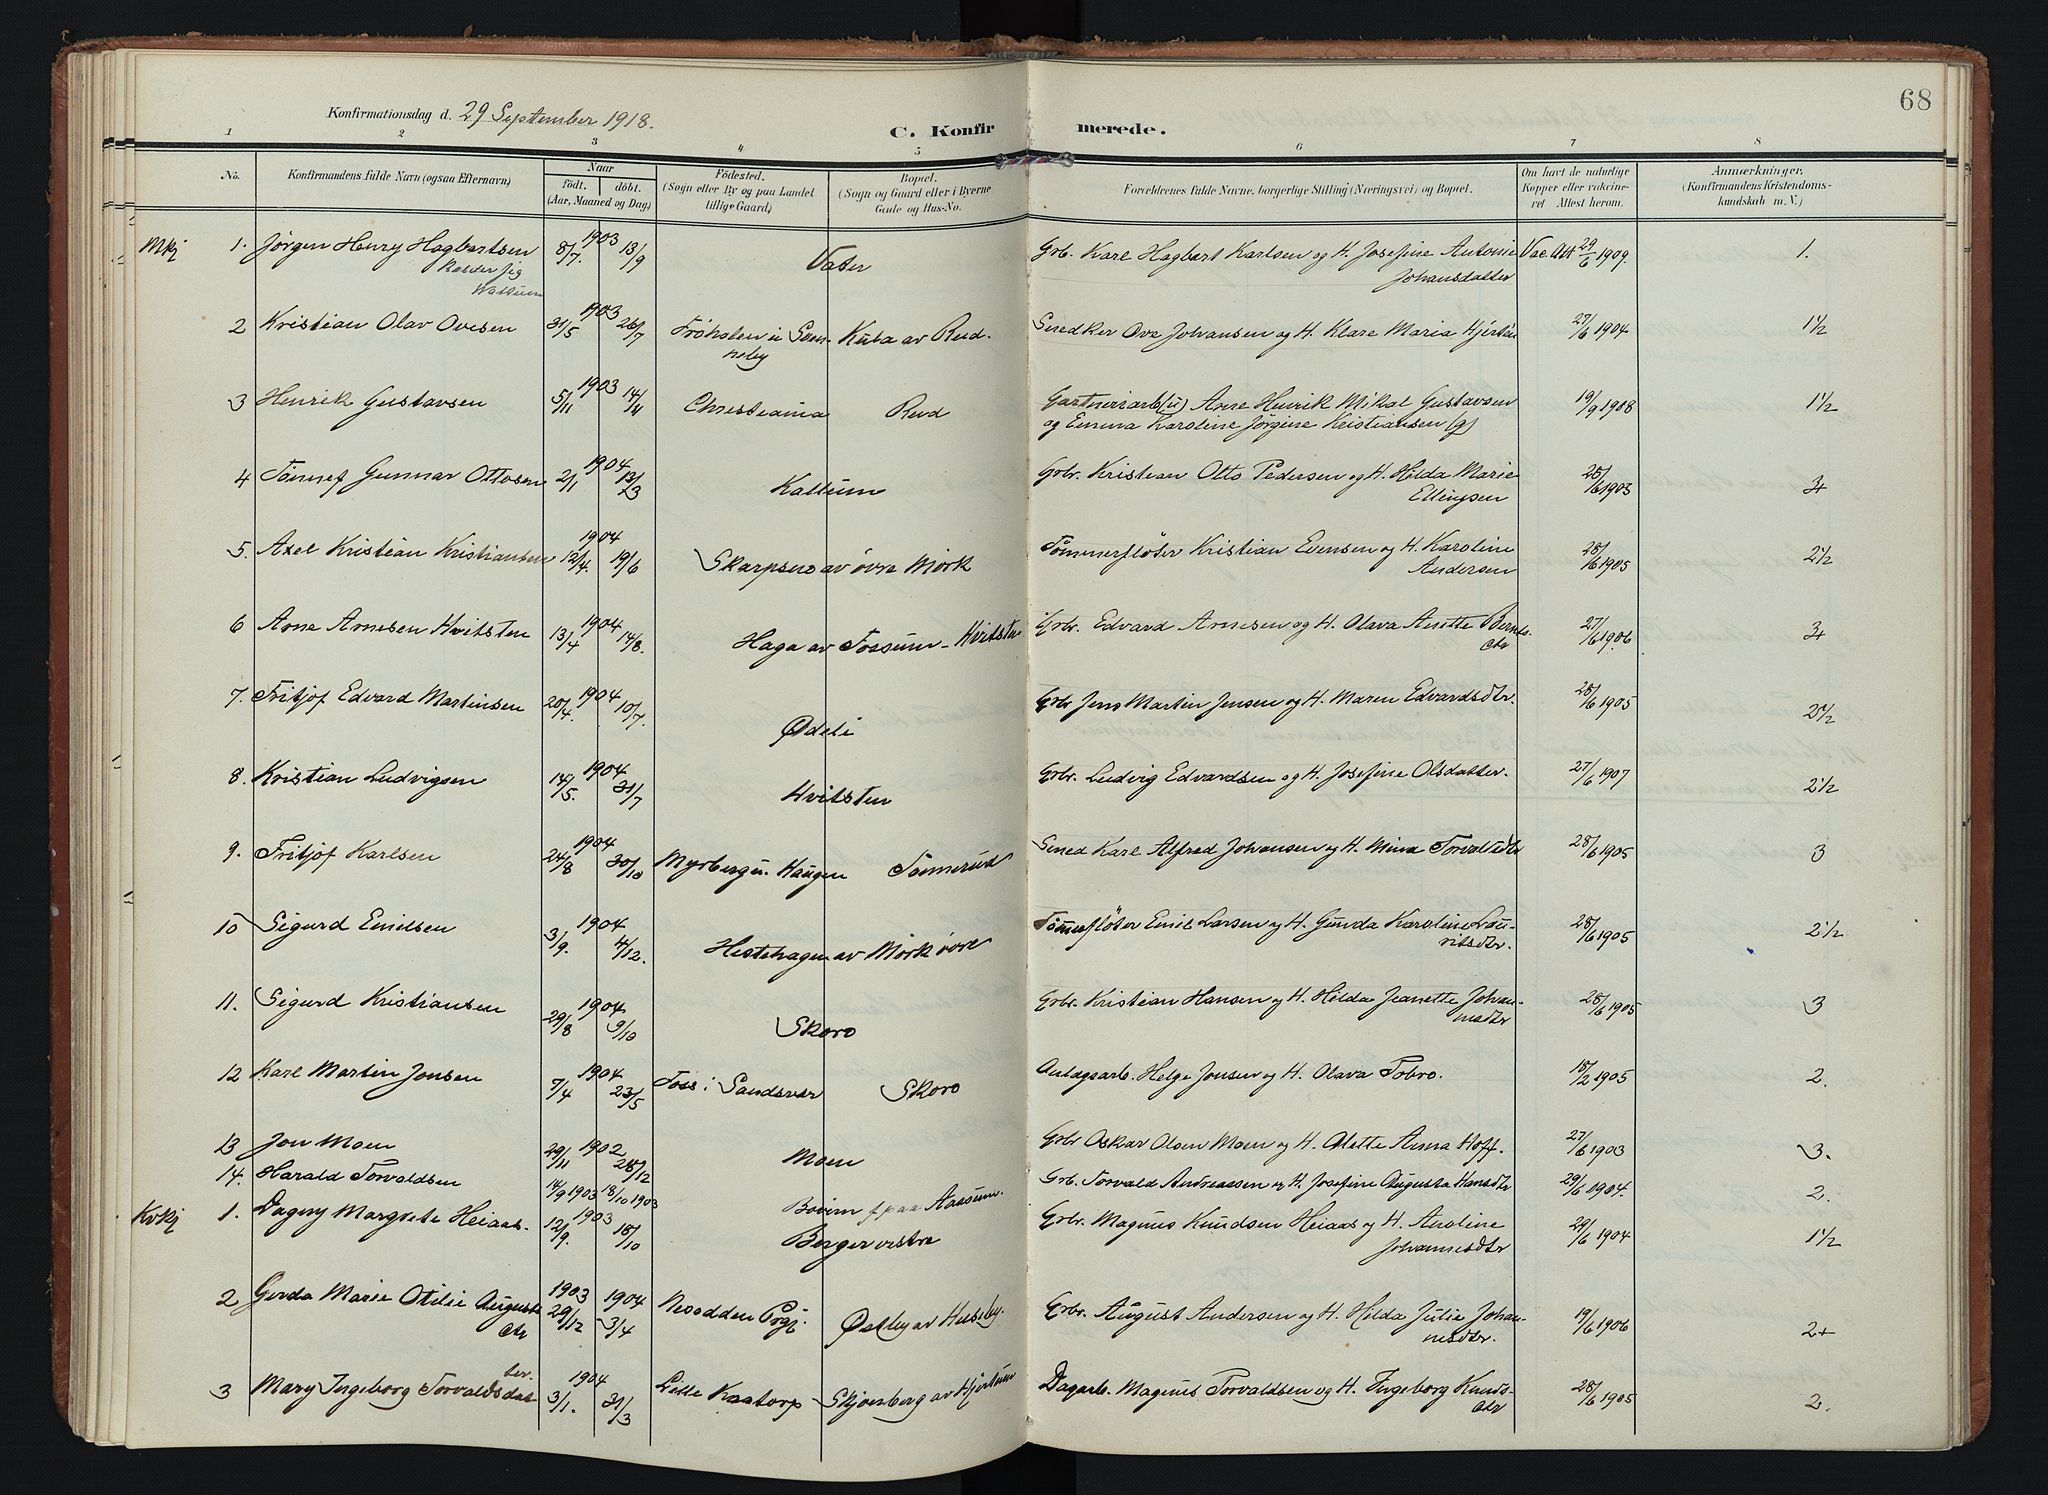 68
Konfirmationsdag d. 29 September 1918.
C. Konfirmerede.
1 2 3 4 5 6 7 8
No.
Konfirmandens fulde Navn (ogsaa Efternavn)
Naar
født. døbt.
(Aar, Maaned og Dag)
Fødested.
(Sogn eller By og paa Landet
tillige Gaard)
Bopæl.
(Sogn og Gaard eller i Byerne
Gade og Hus-No.
Forældrenes fulde Navne, borgerlige Stilling (Næringsvei) og Bopæl.
Om havt de naturlige
Kopper eller vakcine-
ret. Attest herom.
Anmærkninger.
(Konfirmandens Kristendoms-
kundskab m. V.)
Mkj 1. Jörgen Henry Hagbartsen 1903 8/7. 13/9 Vater Grb. Karl Hagbart Karlsen og H. Josefine Antonie Vac. Att 29/6 1909. 1.
Kalder sig
Johansdatter
2 Kristian Olav Ovesen 1903 31/5 26/7 Kuba av Rud. Snedker Ove Johansen og H. Klara Maria 27/6 1904 1½
3 Henrik Gustavsen 1903 5/11 14/4 Christiania Rud Gartneriarb (u) Arne Henrik Mikal Gustavsen 19/9 1908 1½
og Emma Karoline Jörgine Kristiansen (g)
4 Gunnar Ottosen 1904 2/1 13/3 Kallum Grb. Kristian Otto Pedersen og H. Hilda Marie 1903 3+
Ellingsen
5. Axel Kristian Kristiansen 1904 12/4. 19/6 Skarpsno av övre Mörk Tömmerflöter Kristian Evensen og H. Karoline 28/6 1905 2½
Andersen
6 Arne Arnesen Hvitsten 1904 13/4 14/8. Haga av Tossum - Hvitsten Grb. Edvard Arnesen og H. Olava Anette Bernts- 27/6 1906 3+
dtr
7. Fritjof Edvard Martinsen 1904 20/4. 10/7. Ødeli Grb. Jens Martin Jensen og H. Maren Edvardsdtr. 28/6 1905 2½
8. Kristian Ludvigsen 1904 14/5. 31/7 Hvitsten Grb. Ludvig Edvardsen og H. Josefine Olsdatter. 27/6 1907 2½
9. Fritjof Karlsen 1904 24/8 30/10 Myrberg u. Haugen Tömmerud Smed Karl Alfred Johansen og H. Mina Torvaldsdtr 28/6 1905 3
10 Sigurd Emilsen 1904 3/9. 4/12. Hestehagen av Mörk övre Tömmerflöter Emil Larsen og H. Gunda Karoline Lau- 28/6 1905 2½
ritsdtr.
11. Sigurd Kristiansen 1904 29/8 9/10 Skoro Grb. Kristian Hansen og H. Hilda Jeanette Johan- 28/6 1905 3
nesdtr
12 Karl Martin Jonsen 1904 7/4 23/5 Foss i Sandsvær Skoro Anlægsarb. Helge Jonsen og H. Olava Tobro. 18/2 1905 2.
13 Jon Moen 1902 29/11 28/12 Moen Grb Oskar Olsen Moen og H. Alette Anna Hoff. 27/6 1903 3.
14. Harald Torvaldsen 14/9 1903 18/10 1903 Grb. Torvald Andreassen og H. Josefine Augusta Hansdtr 29/6 1904. 2.
Kvkj 1. Dagny Margrete Heiaas. 1903 12/9. 18/10 Berger vestre Grbr. Magnus Knudsen Heiaas og H. Anoline 29/6 1904 1½
Johannesdtr
2 Gerda Marie Otilie Augusts- 1903 29/12 1904 3/4 Nesodden Prgj. Østby av Huseby. Grbr. August Andersen og H. Hilda Julie Johan- 19/6 1906 2+
dtr
nesdtr.
3 Mary Ingeborg Torvaldsdat- 1904 3/1. 31/3 Lille Kaatorp - Skjønberg av Hjertum Dagarb. Magnus Torvaldsen og H. Ingeborg Knuds- 28/6 1905 2.
ter.
dtr